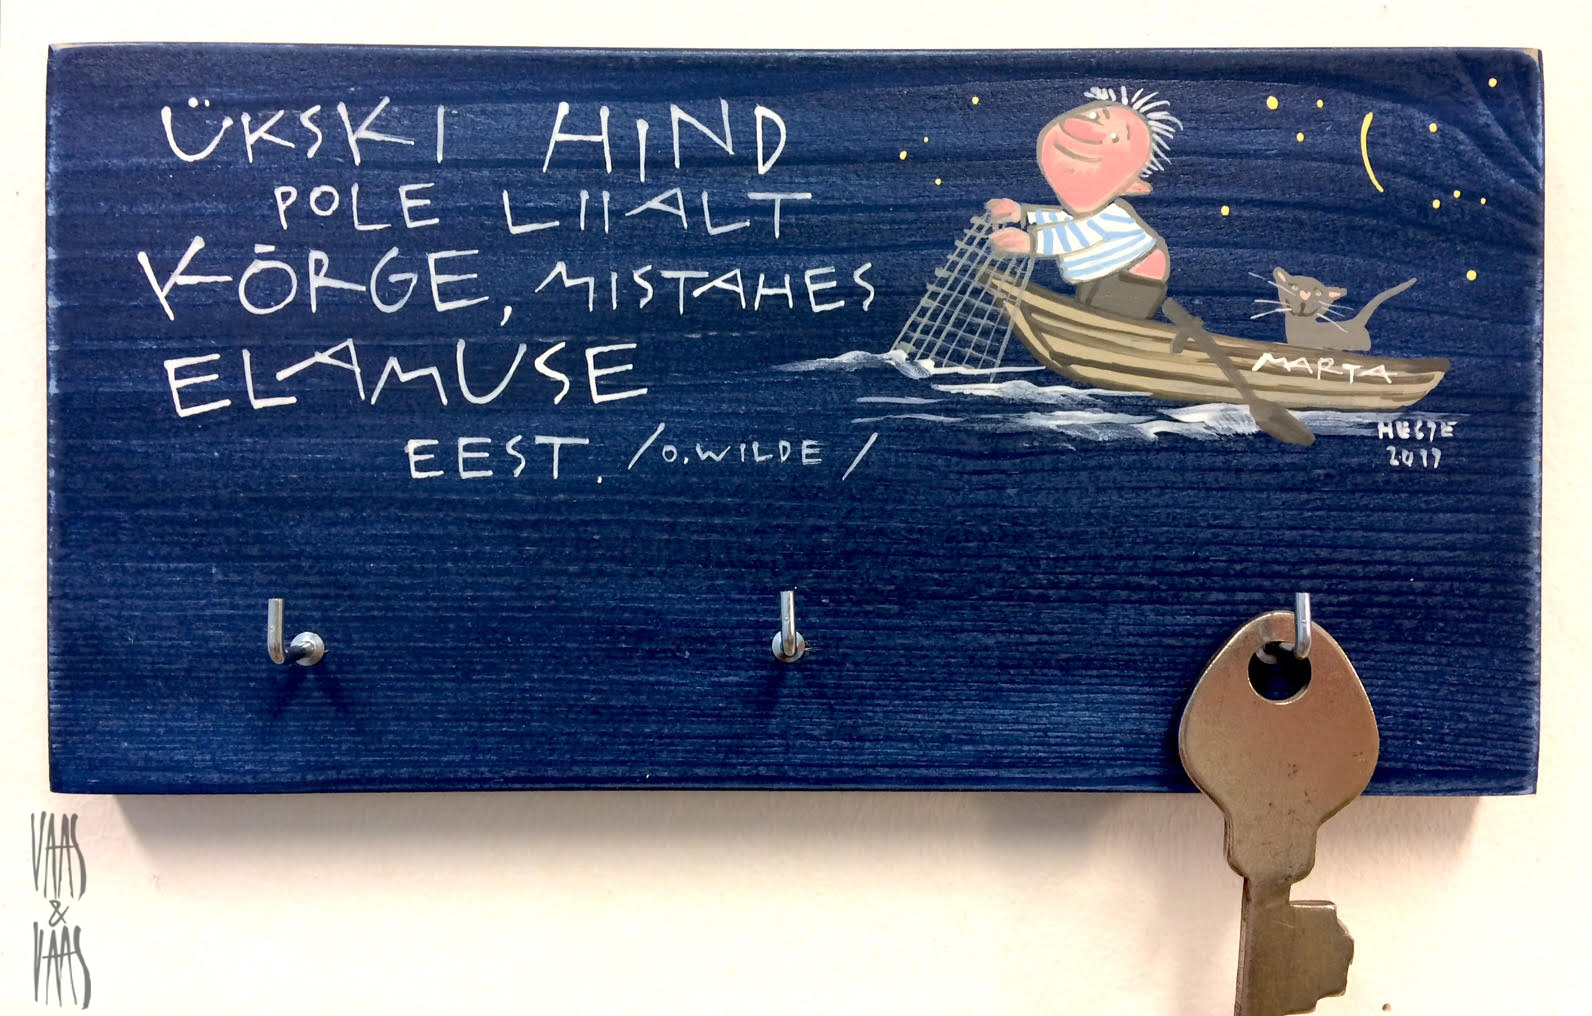 ÜKSKI HIND
POLE LIIALT
KÕRGE, MISTAHES
ELAMUSE
EEST. /O.WILDE/
MARTA
VAAS
&
VAAS